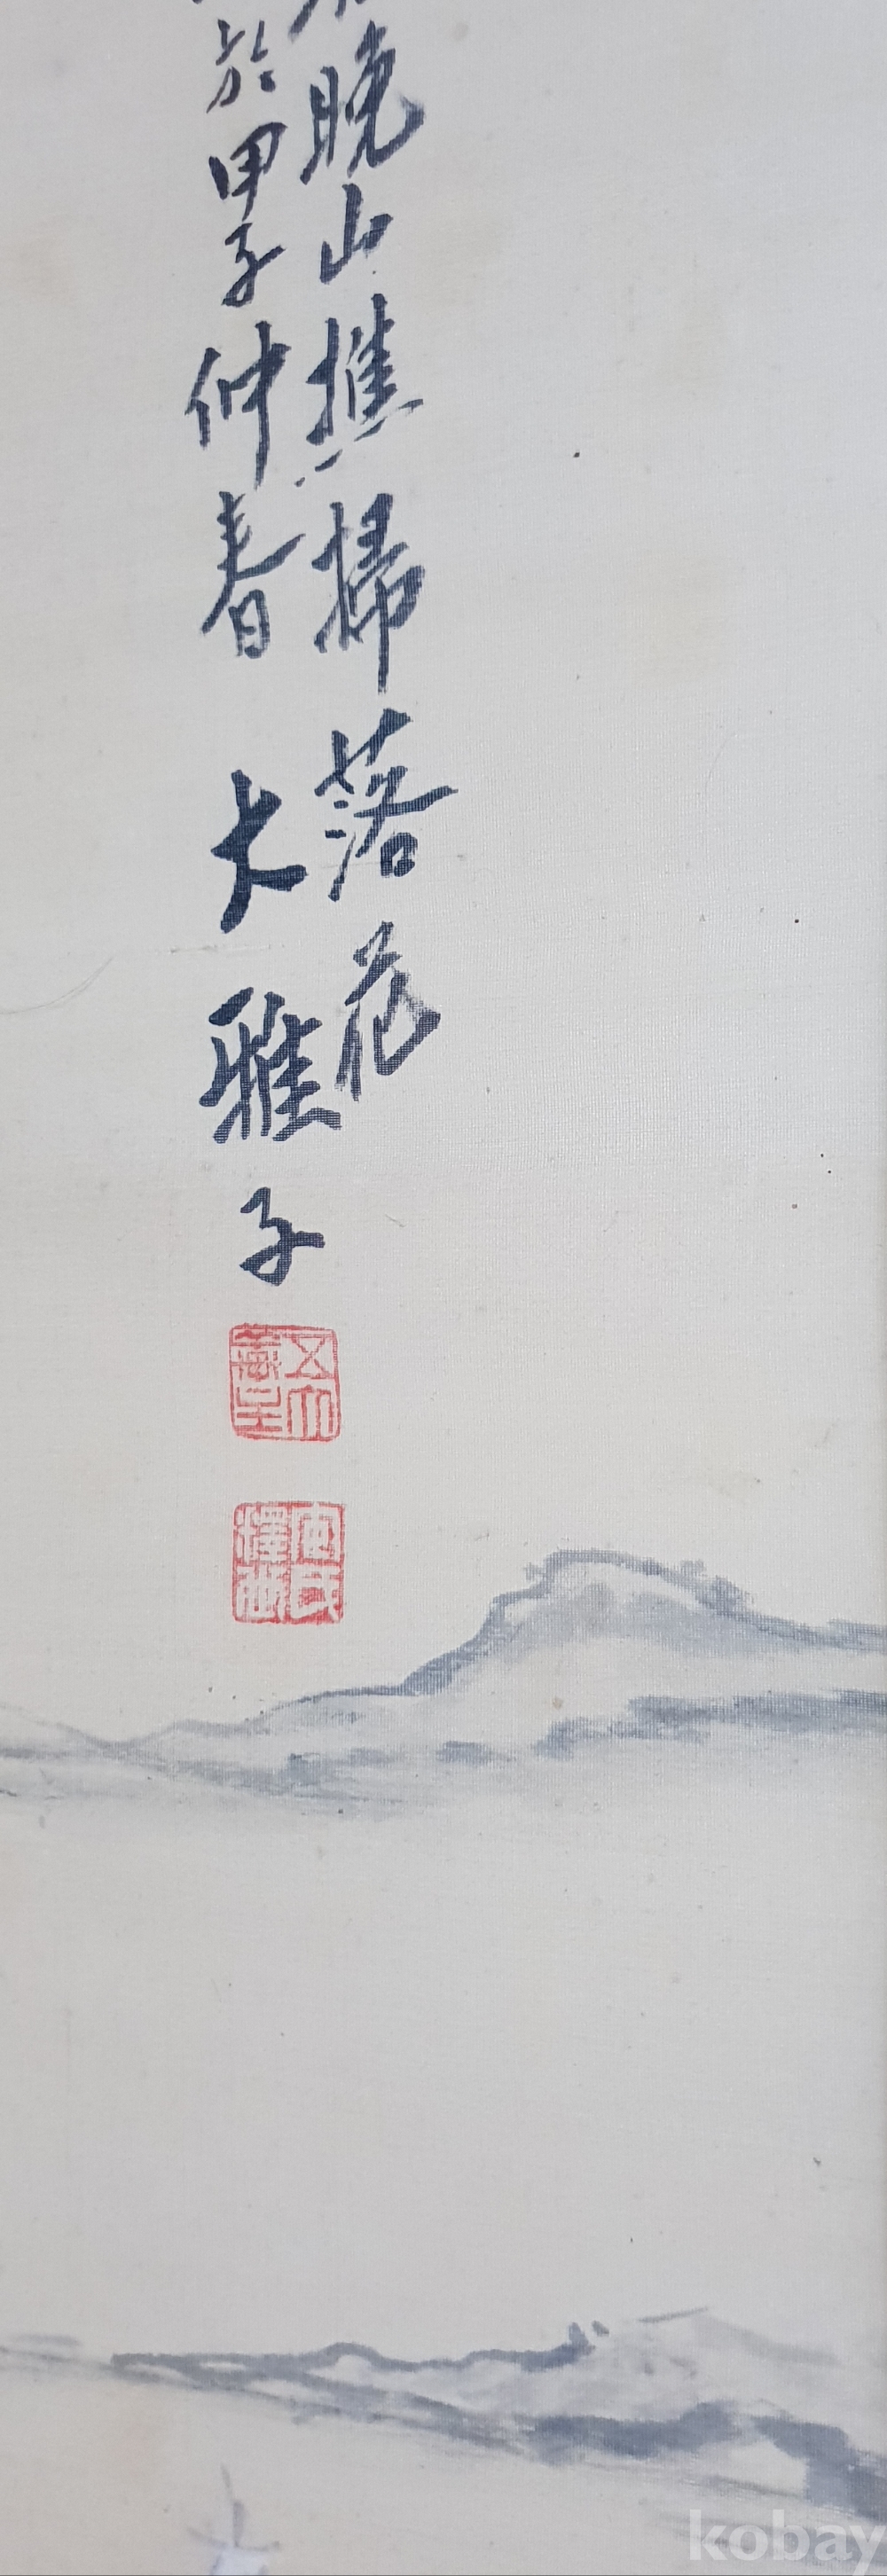 晚山樵掃落花
於甲子仲春 大雅子
kobay